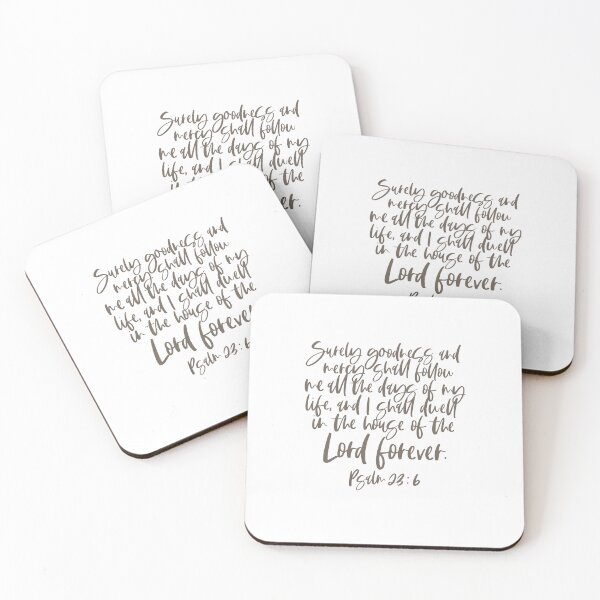 Surely goodness and
mercy shall follow
me all the days of my
life, and I shall dwell
of the
forever.
Surely goodness and
mercy shall follow
me all the days of my
life, and I shall dwell
in the house of the
Lord forever.
Surely goodness and
mercy shall follow
me all the days of my
life, and I shall dwell
in the house of the
Lord forever
Psalm 23:6
Surely goodness and
mercy shall follow
me all the days of my
life, and I shall dwell
in the house of the
Lord forever.
Psalm 23:6